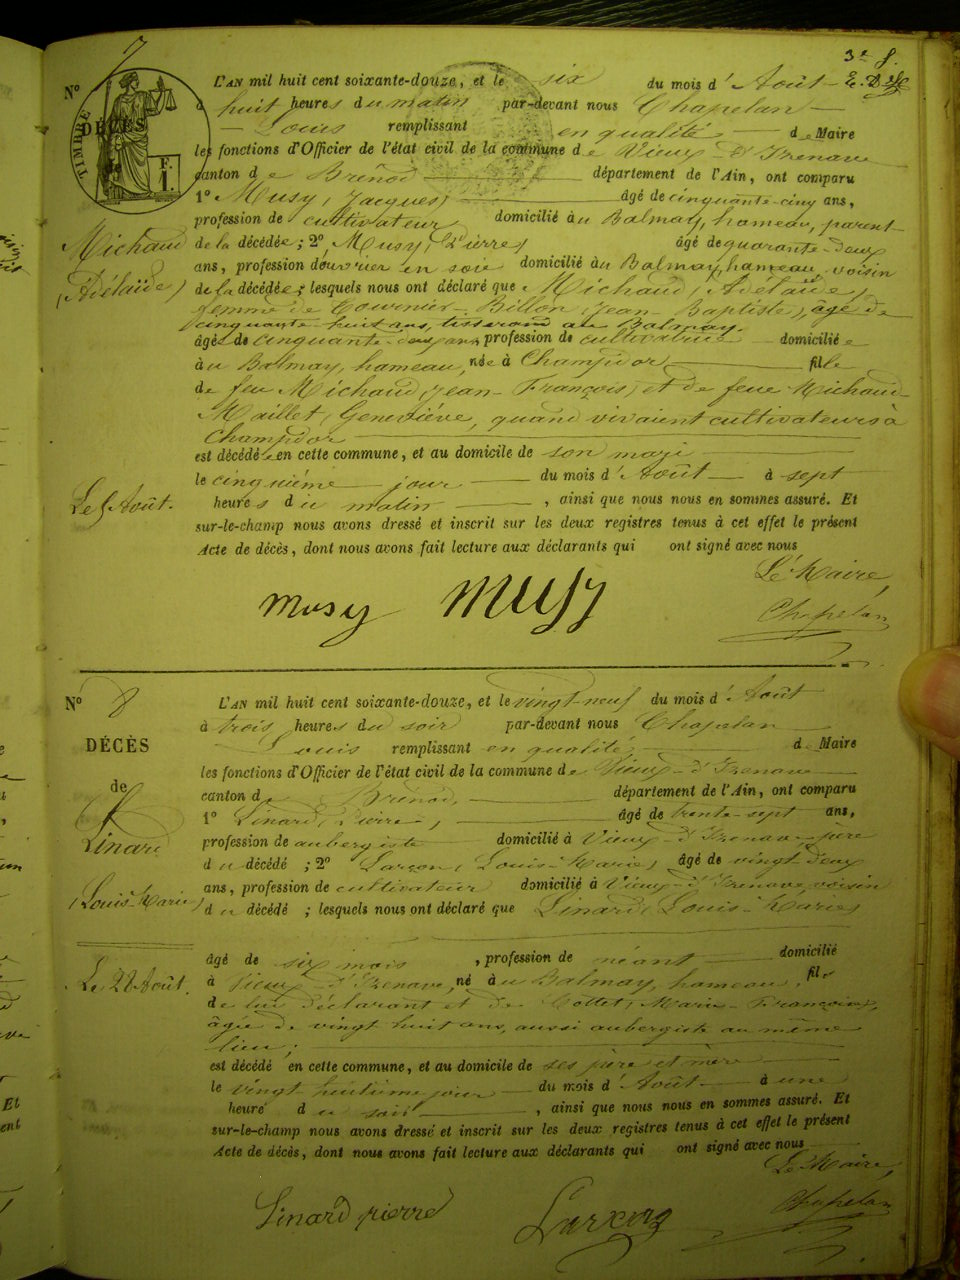 7
3e f.
Nº
TIMBRE
DÉCÈS
de
F.
1.
L'AN mil huit cent soixante-douze, et le six du mois d'Août
à huit heures du matin par-devant nous Chapelan
Louis remplissant en qualité de Maire
les fonctions d'Officier de l'état civil de la commune de Vieux-d'Izenave
canton de Brénod département de l'Ain, ont comparu
1º Musy (Jacques) âgé de cinquante-cinq ans,
profession de cultivateur domicilié au Balmay, hameau, parent
de la décédée ; 2º Musy (Pierre) âgé de quarante-deux
ans, profession d'ouvrier en soie domicilié au Balmay, hameau, voisin
de la décédée ; lesquels nous ont déclaré que Michaud (Adélaïde)
femme de Tournier-Billon (Jean-Baptiste), âgé de
cinquante-huit ans, tisserand au Balmay.
âgée de cinquante-deux ans, profession de cultivatrice domiciliée
au Balmay, hameau, née à Champdor fille
de feu Michaud (Jean-François) et de feue Michaud-
Maillet (Geneviève, quand vivaient cultivateurs à
Champdor
est décédée en cette commune, et au domicile de son mari
le cinquième jour du mois d'Août à sept
heures du matin , ainsi que nous nous en sommes assuré. Et
sur-le-champ nous avons dressé et inscrit sur les deux registres tenus à cet effet le présent
Acte de décès, dont nous avons fait lecture aux déclarants qui ont signé avec nous
Michaud
(Adélaïde)
Le 5 Août.
Le Maire,
Musy Musy Chapelan
Nº 8
DÉCÈS
de
Linard
(Louis-Marie)
Le 28 Août.
L'AN mil huit cent soixante-douze, et le vingt-neuf du mois d'Août
à trois heures du soir par-devant nous Chapelan
Louis remplissant en qualité de Maire
les fonctions d'Officier de l'état civil de la commune de Vieux-d'Izenave
canton de Brénod, département de l'Ain, ont comparu
1º Linard (Pierre) âgé de trente-sept ans,
profession de aubergiste domicilié à Vieux-d'Izenave père
du décédé ; 2º (Louis-Marie) âgé de vingt-deux
ans, profession de cultivateur domicilié à Vieux-d'Izenave, voisin
du décédé ; lesquels nous ont déclaré que Linard (Louis-Marie)
âgé de six mois , profession de néant domicilié
à Vieux-d'Izenave, né au Balmay, hameau, fils
de lui déclarant et de Collet (Marie-Françoise),
âgée de vingt huit ans, aussi aubergiste au même
lieu ;
est décédé en cette commune, et au domicile de ses père et mère
le vingt huitième jour du mois d'Août à une
heure du soir , ainsi que nous nous en sommes assuré. Et
sur-le-champ nous avons dressé et inscrit sur les deux registres tenus à cet effet le présent
Acte de décès, dont nous avons fait lecture aux déclarants qui ont signé avec nous
Le Maire,
Linard pierre Chapelan